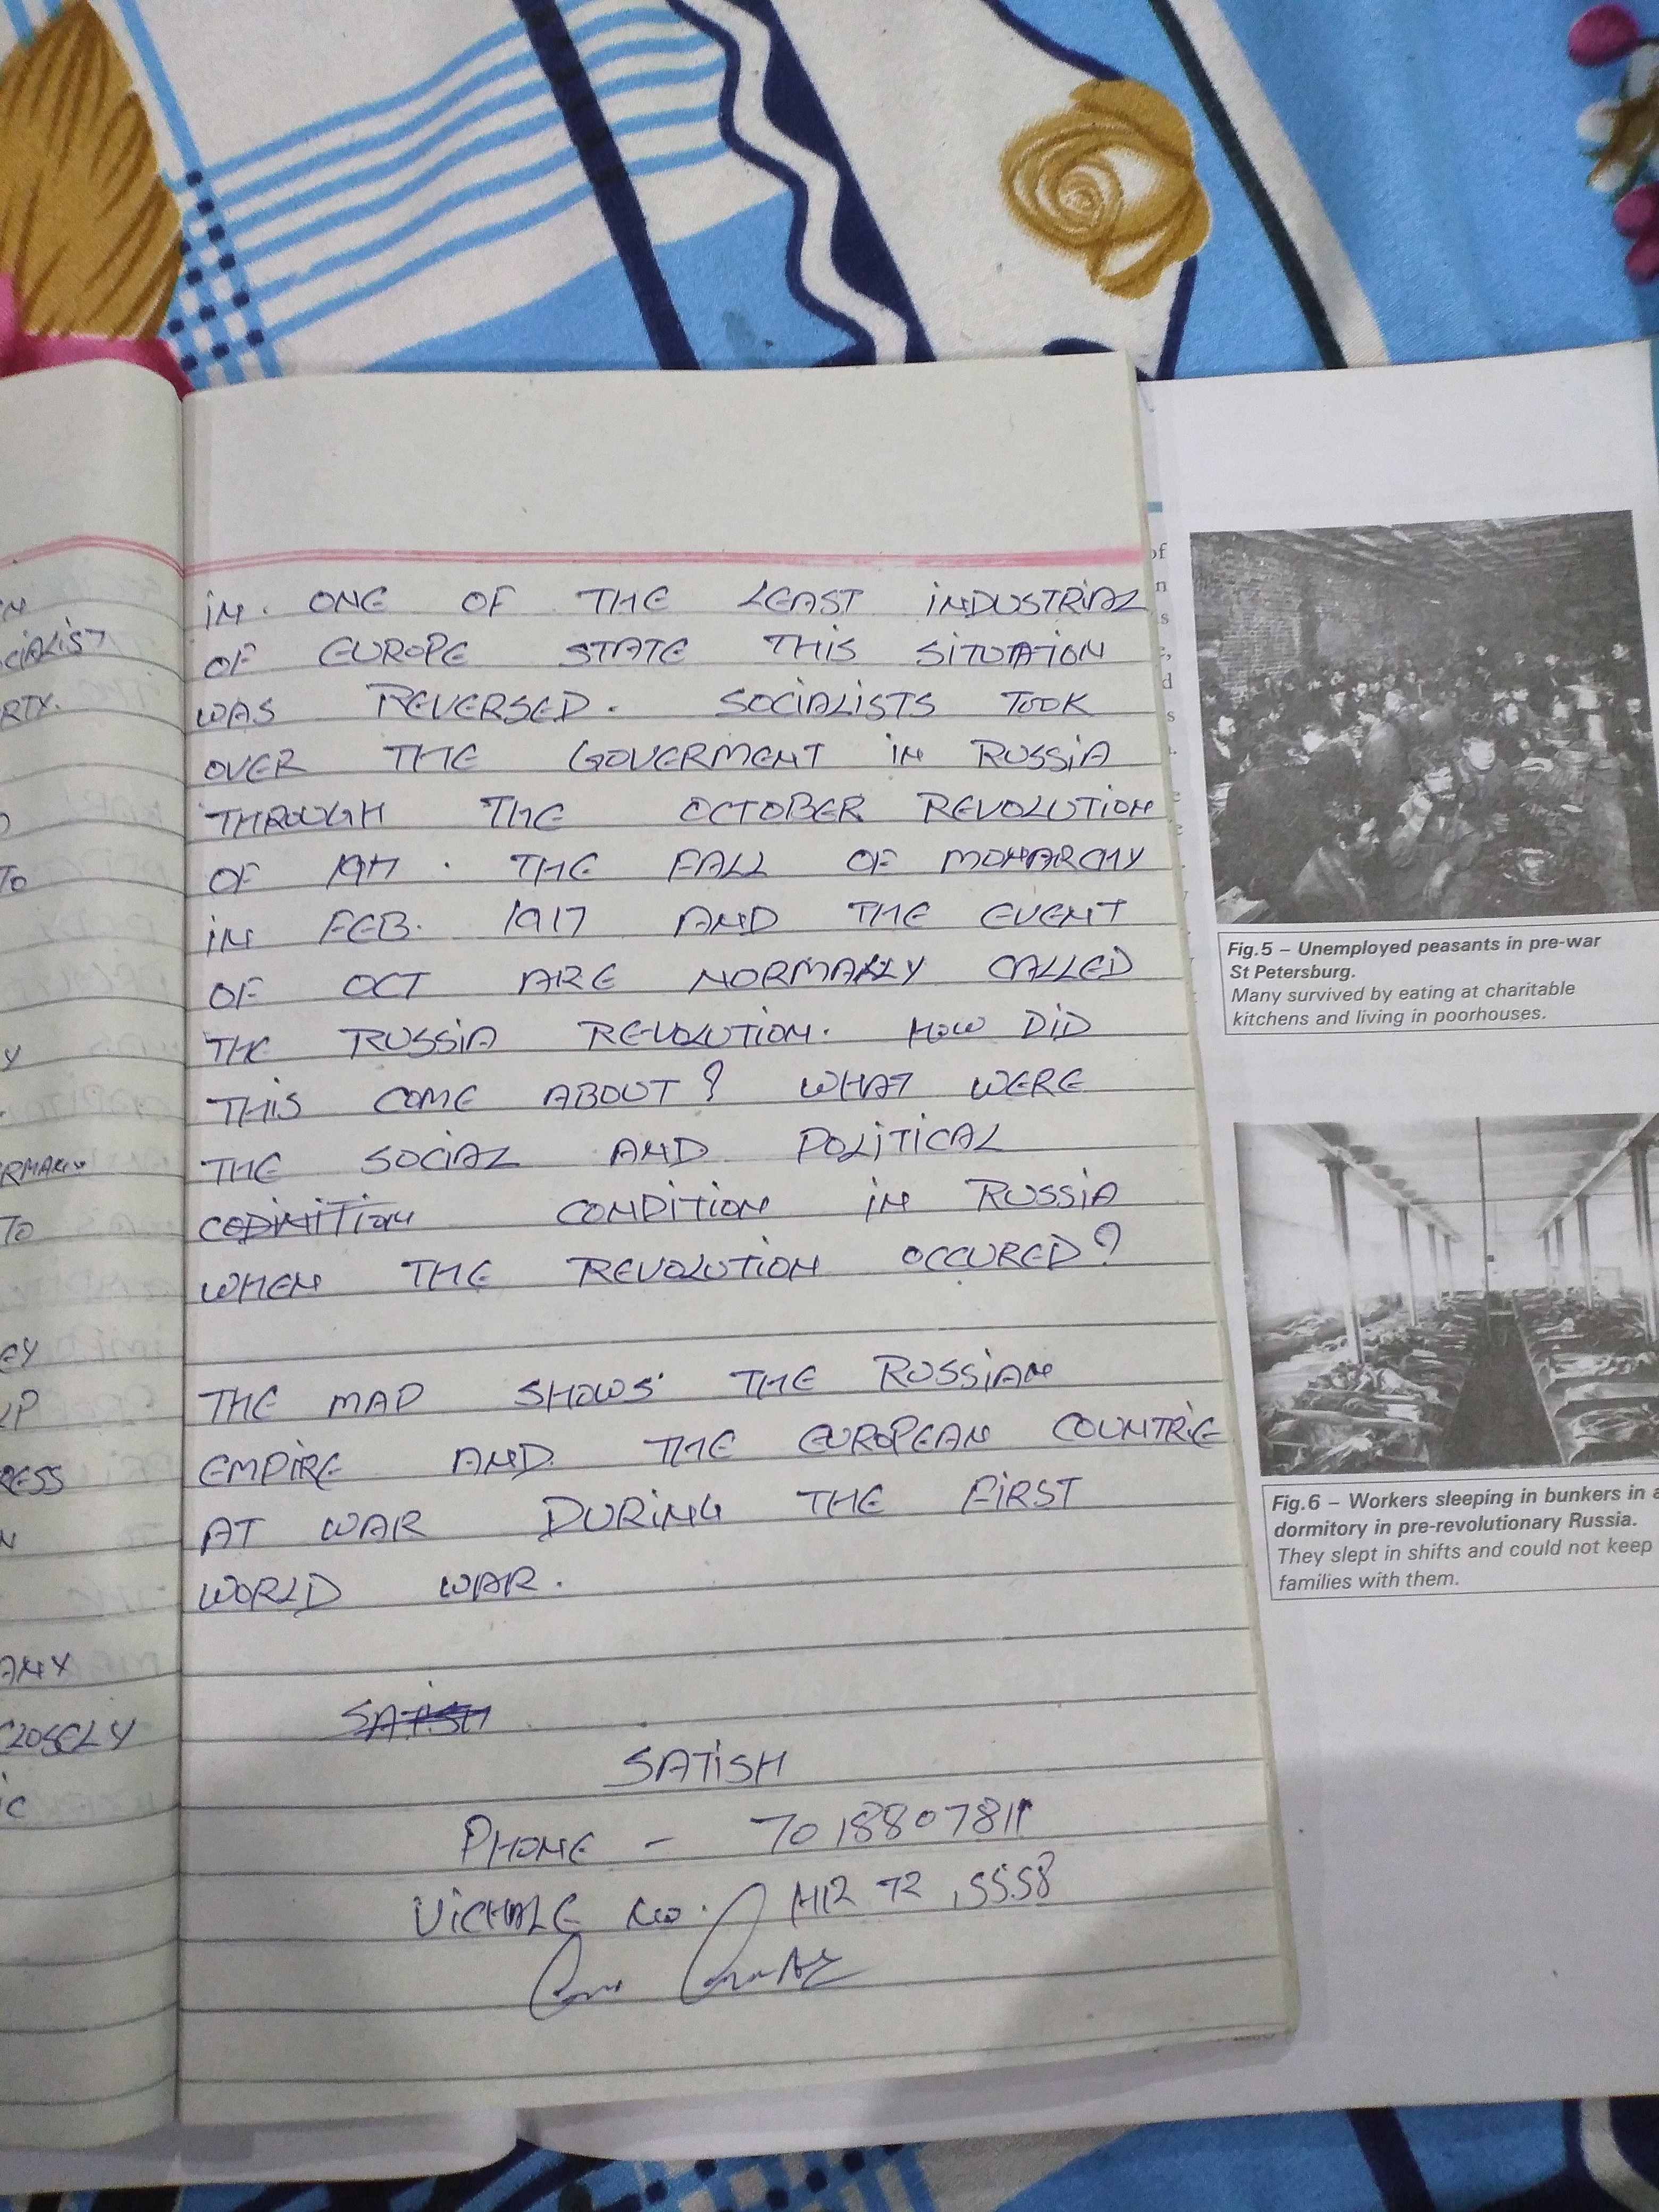 IN. ONE OF THE LEAST INDUSTRIAL
OF EUROPE STATE THIS SITUATION
WAS REVERSED. SOCIALISTS TOOK
OVER THE GOVERMENT IN RUSSIA
THROUGH THE OCTOBER REVOLUTION
OF 1917. THE FALL OF MONARCHY
IN FEB. 1917 AND THE EVENT
OF OCT ARE NORMALLY CALLED
THE RUSSIA REVOLUTION. HOW DID
THIS COME ABOUT? WHAT WERE
THE SOCIAL AND POLITICAL
CONDITION IN RUSSIA
WHEN THE REVOLUTION OCCURED?
THE MAP SHOWS THE RUSSIAN
EMPIRE AND THE EUROPEAN COUNTRIE
AT WAR DURING THE FIRST
WORLD WAR.
SATISH
SATISH
PHONE - 7018807811
NO. 72 5558
Fig.5 – Unemployed peasants in pre-war
St Petersburg.
Many survived by eating at charitable
kitchens and living in poorhouses.
Fig.6 – Workers sleeping in bunkers in a
dormitory in pre-revolutionary Russia.
They slept in shifts and could not keep
families with them.